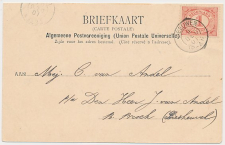 BRIEFKAART
(CARTE POSTALE)
Algemeene Postvereeniging (Union Postale Universelle)
Zijde voor het adres bestemd. (Côté réservé à l'adresse.)
AAN
Mej. C. van Andel
den Heer J. van Andel